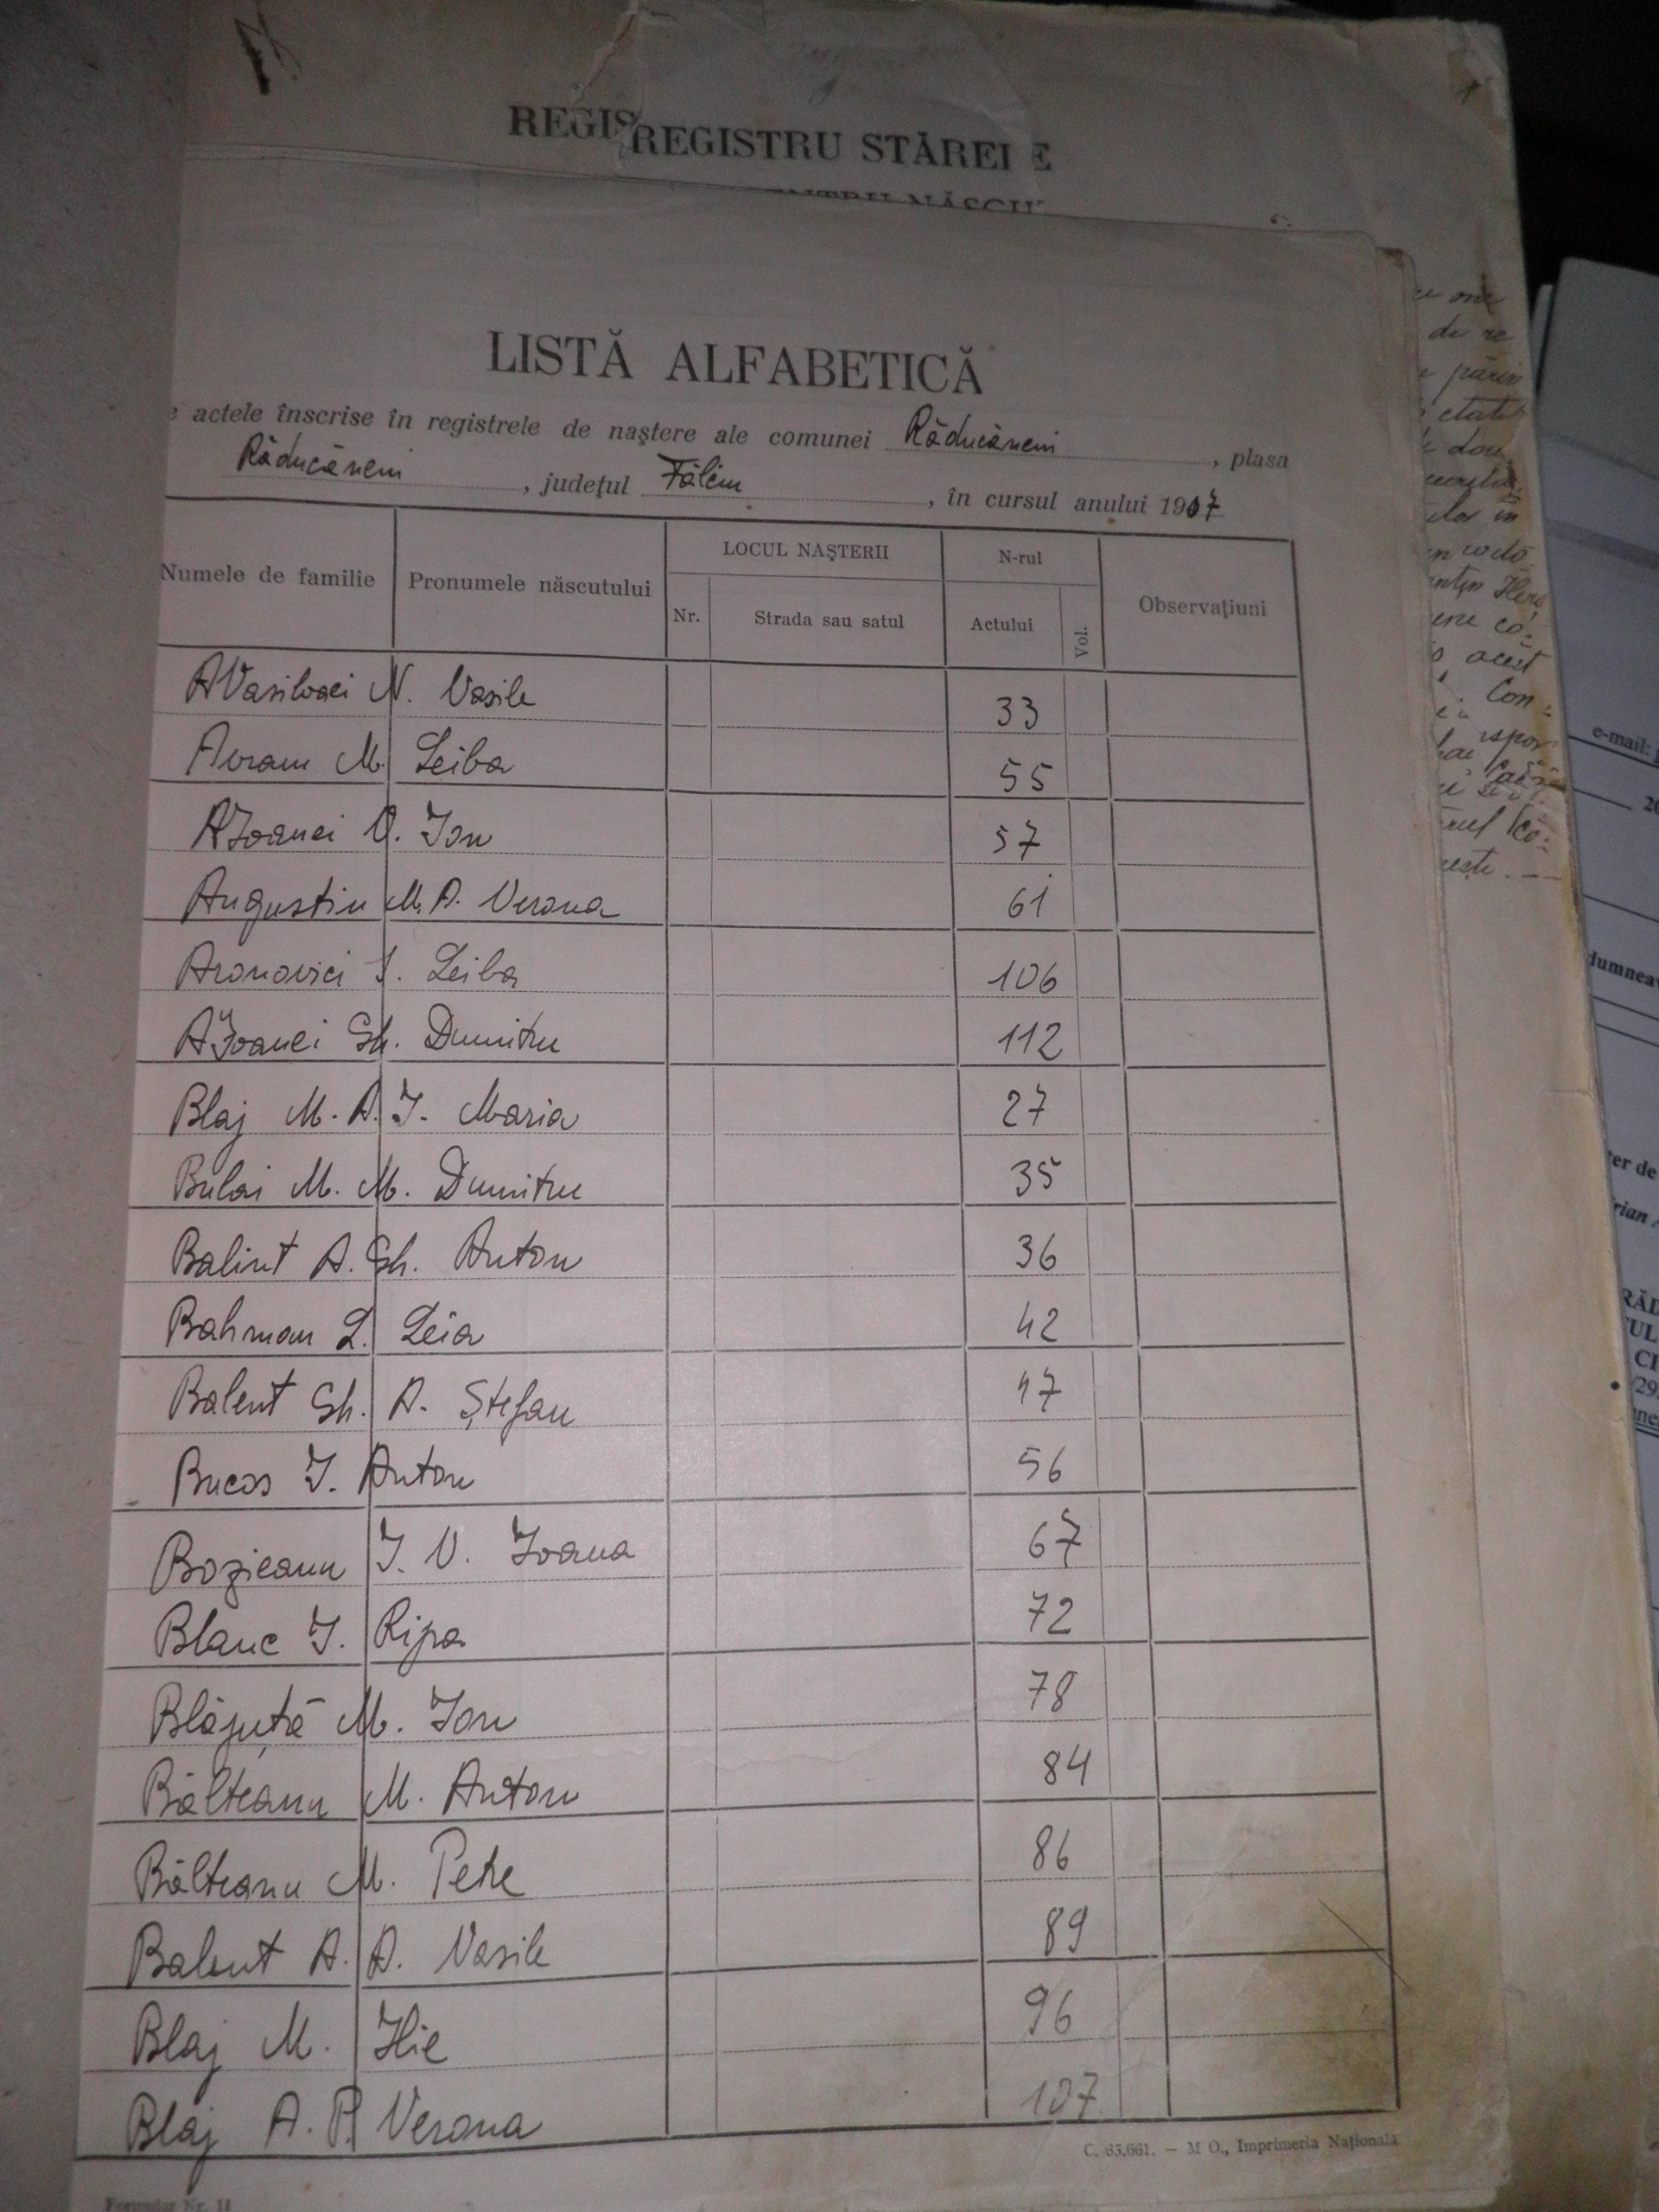 REGIS REGISTRU STĂREI E
LISTĂ ALFABETICĂ
e actele înscrise în registrele de naştere ale comunei Răducăneni, plasa
Răducăneni, judeţul Fălciu, în cursul anului 1907
Numele de familie Pronumele născutului LOCUL NAŞTERII N-rul Observaţiuni
Nr. Strada sau satul Actului Vol.
AVasiloaei N. Vasile 33
Avram M. Leiba 55
AIoanei V. Ion 57
Augustin M. A. Verona 61
Aronovici I. Leiba 106
AIoanei Gh. Dumitru 112
Blaj M. A. I. Maria 27
Bulai M. M. Dumitru 35
Balint A. Gh. Anton 36
Bahman L. Leia 42
Balent Gh. A. Ștefan 47
Bucos I. Anton 56
Bozieanu I. V. Ioana 67
Blanc I. Ripa 72
Blăjuță M. Ion 78
Bâlteanu M. Anton 84
Bâlteanu M. Petre 86
Balent A. A. Vasile 89
Blaj M. Ilie 96
Blaj A. P. Verona 107
C. 65.661. — M O., Imprimeria Naţională
Formular Nr. 11
e-mail: